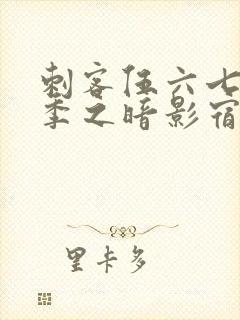 刺客伍六七
季之暗影宿
里卡多